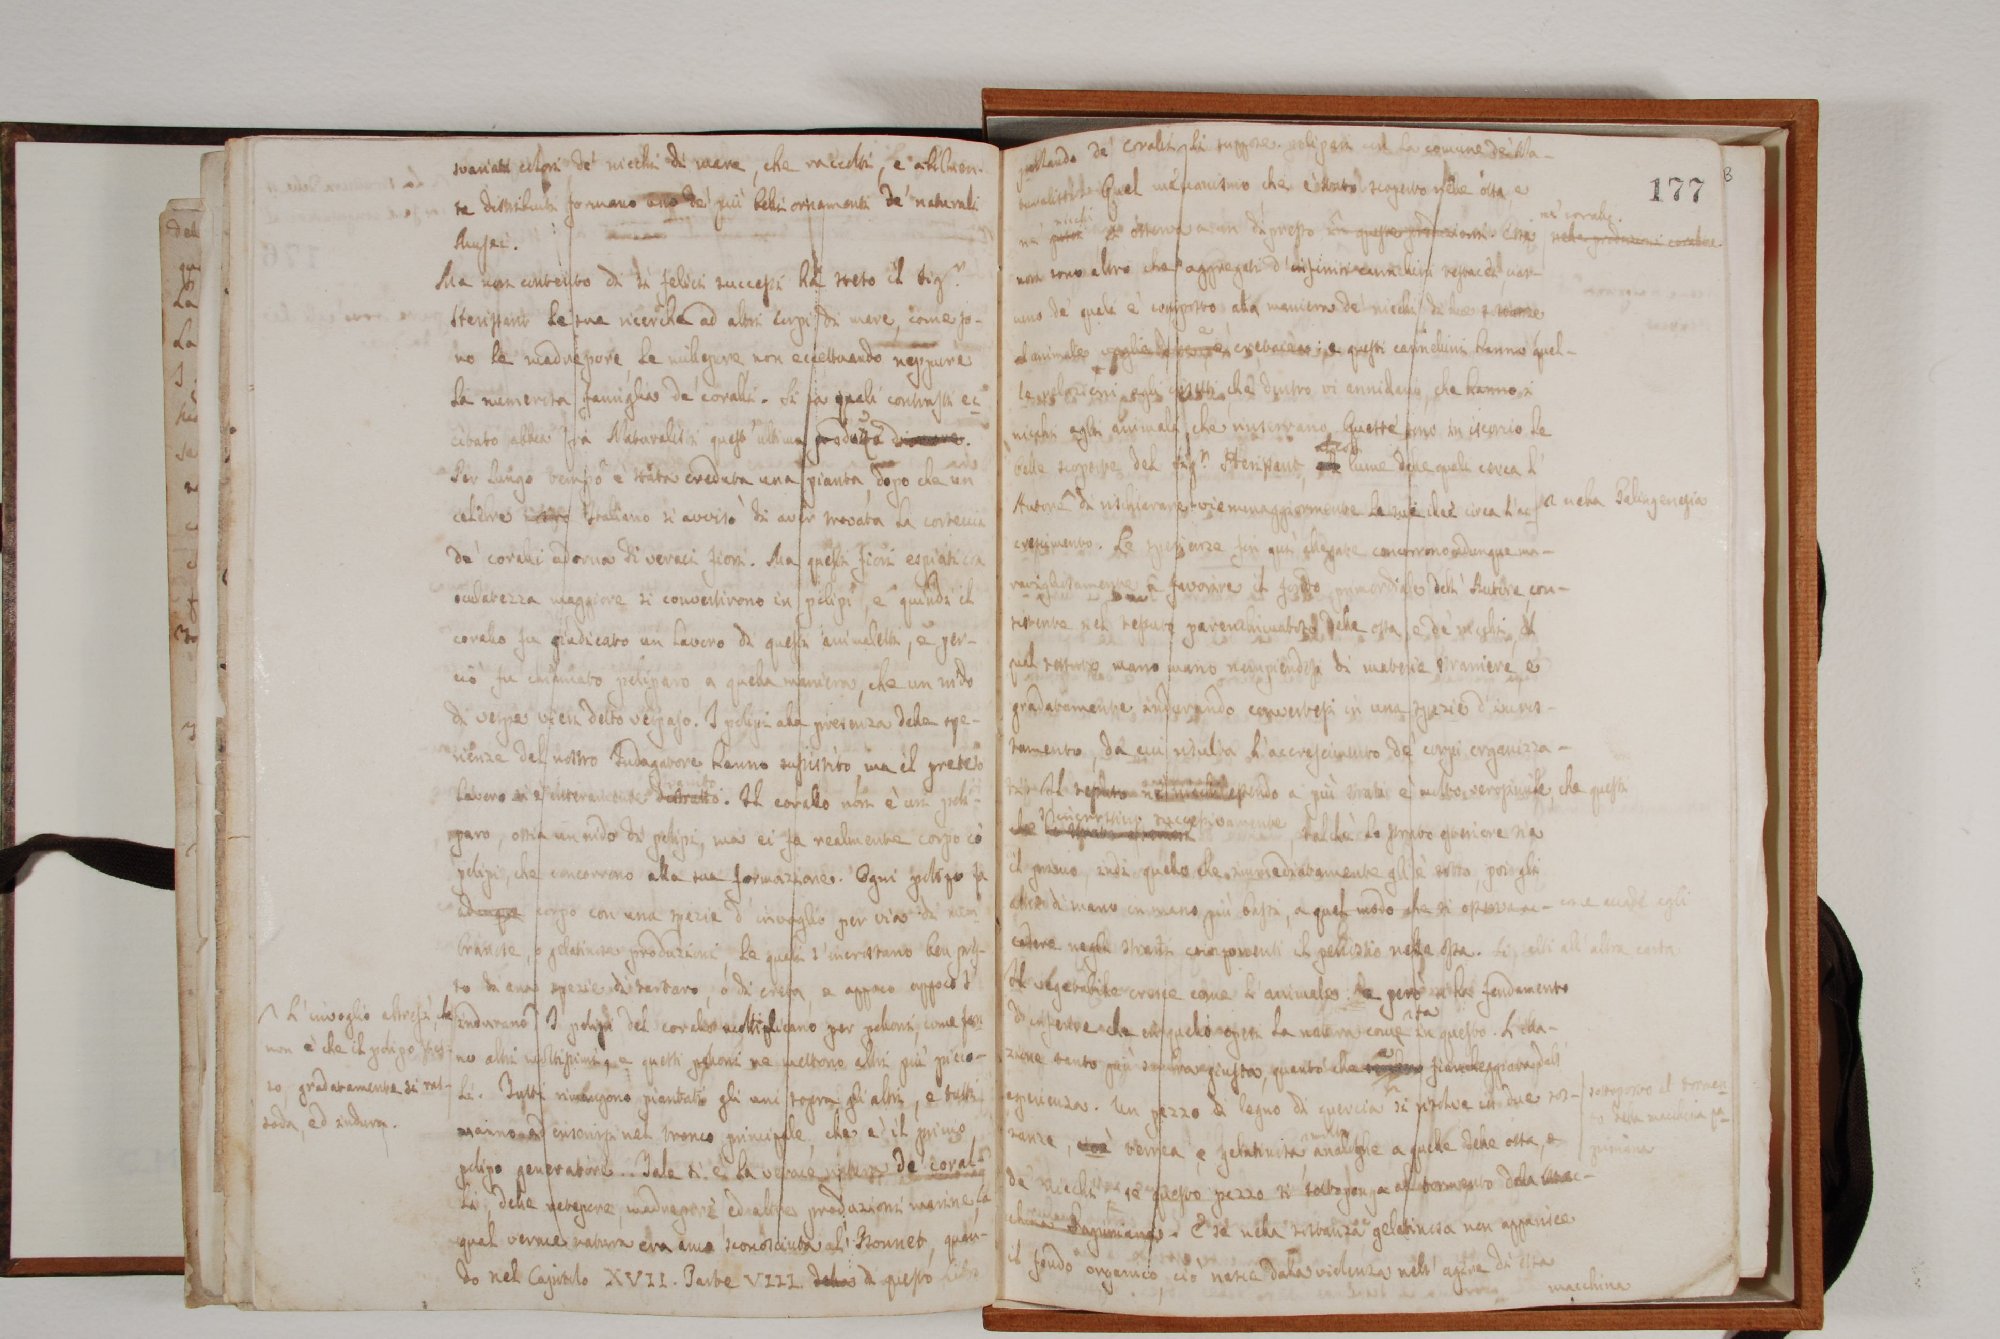 svariati colori de' nicchi di mare, che raccolti, e abilmen-
te distribuiti formano uno de' più belli ornamenti de' naturali
Musei.
Ma non contento di sì felici successi ha steso il Sigr.
Herissant le sue ricerche ad altri corpi di mare, come so-
no le madrepore le millepore non eccettuando neppure
la numerosa famiglia de' coralli. Si sa quali contrasti ec-
citato abbia fra Naturalisti quest'ultima
Per lungo tempo è stata creduta una pianta, dopo che un
celebre Italiano si avvisò di aver trovata la corteccia
de' coralli adorna di veraci fiori. Ma questi fiori espiati con
oculatezza maggiore si convertirono in polipi, e quindi il
corallo fu giudicato un lavoro di questi animaletti, e per-
ciò fu chiamato poliparo a quella maniera, che un nido
di vespe vien detto vespajo. I polipi alla presenza delle spe-
rienze del nostro Indagatore hanno sussistito, ma il preteso
lavoro si è interamente svanito. Il corallo non è un poli-
paro, ossia un nido di polipi, ma ei fa realmente corpo co'
polipi, che concorrono alla sua formazione. Ogni polipo fa
adunque corpo con una spezie d'invoglio per via di mem
branose, o gelatinose produzioni, le quali s'incrostano ben pres-
to di una spezie di tartaro, o di creta, e appoco appoco s'
indurano. I polipi del corallo moltiplicano per polloni, come fan
no altri moltissimi, e questi polloni ne mettono altri più picco-
li. Tutti rimangono piantati gli uni sopra gli altri, e tutti
vanno ad inserirsi nel tronco principale, che è il primo
polipo generatore. Tale si è la verace natura de' coral-
li, delle retepore, madrepore, ed altre produzioni marine, la
qual verace natura era anco sconosciuta al Bonnet, quan-
do nel Capitolo XVII. Parte VIII. di questo Libro
^ L'invoglio altresì, che
non è che il polipo stes-
so, gradatamente si ras-
soda, ed indura.
177
parlando de' coralli li suppose polipari con la comune de' Na-
turalisti. Quel meccanismo che è stato scoperto nelle ossa, e
ne' nicchi si osserva a un di presso
ne' coralli.
nelle produzioni coralline.
non sono altro che aggregati d'infiniti cannellini testacei, cias-
uno de' quali è composto alla maniera de' nicchi di
animale e cretacea; e questi cannellini hanno quel-
le relazioni agli insetti, che dentro vi annidano, che hanno i
nicchi agli animali, che nuserrano. Queste sono in iscorcio le
belle scoperte del Sigr. Herissant, al lume delle quali cerca l'
Autore di rischiarare vie maggiormente le sue idee circa l'ac-
nella Palingenesia
crescimento. Le sperienze fin quì allegate concorrono adunque ma-
ravigliosamente a favorire il fondo primordiale dell'Autore, con-
sistente nel tessuto parenchimatoso delle ossa, e de' nicchi, il
qual tessuto mano mano riempiendosi di materie straniere, e
gradatamente indurando convertesi in una spezie d'incros-
tamento, da cui risulta l'accrescimento de' corpi organizza-
ti. Il tessuto ne' nicchi essendo a più strati è molto verosimile che questi
s'incrostino successivamente, talchè lo strato esteriore sia
il primo, indi quello che immediatamente gli è sotto, poi gli
altri di mano in mano più bassi, a quel modo che si osserva ac-
come accade egli
cadere negli strati componenti il periostio nelle ossa.
Il vegetabile cresce come l'animale. Se però v'ha fondamento
d'inferire che in quello operi la natura come in questo. L'illa-
zione tanto più sembra giusta, quanto che fiancheggiata dall'
esperienza. Un pezzo di legno di quercia si risolve in due sos-
tanze, terrea e gelatinosa, analoghe a quelle delle ossa, e
sottoposto al tormen-
to della macchina pa-
piniana
de' nicchi se questo pezzo si sottoponga al tormento della mac-
china Papiniana. E se nella sostanza gelatinosa non apparisce
il fondo organico, ciò nasce dalla violenza nell'agire di essa
macchina